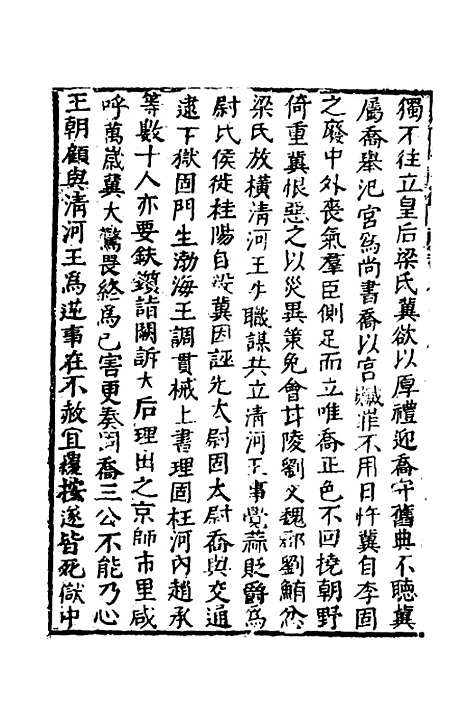 獨不往立皇后梁氏冀欲以厚禮迎喬守舊典不聽冀
屬喬舉氾宮爲尚書喬以宮贓罪不用日忤冀自李固
之廢中外喪氣羣臣側足而立唯喬正色不回撓朝野
倚重冀恨惡之以災異策免會甘陵劉文魏郡劉鮪忿
梁氏放橫清河王失職謀共立清河王事覺蒜貶爵爲
尉氏侯徙桂陽自殺冀因誣先太尉固太尉喬與交通
逮下獄固門生渤海王調貫械上書理固枉河內趙承
等數十人亦要鈇鑕詣闕訴太后理出之京師市里咸
呼萬歲冀大驚畏終爲己害更奏固喬三公不能乃心
王朝顧與清河王爲逆事在不赦宜覆按遂皆死獄中